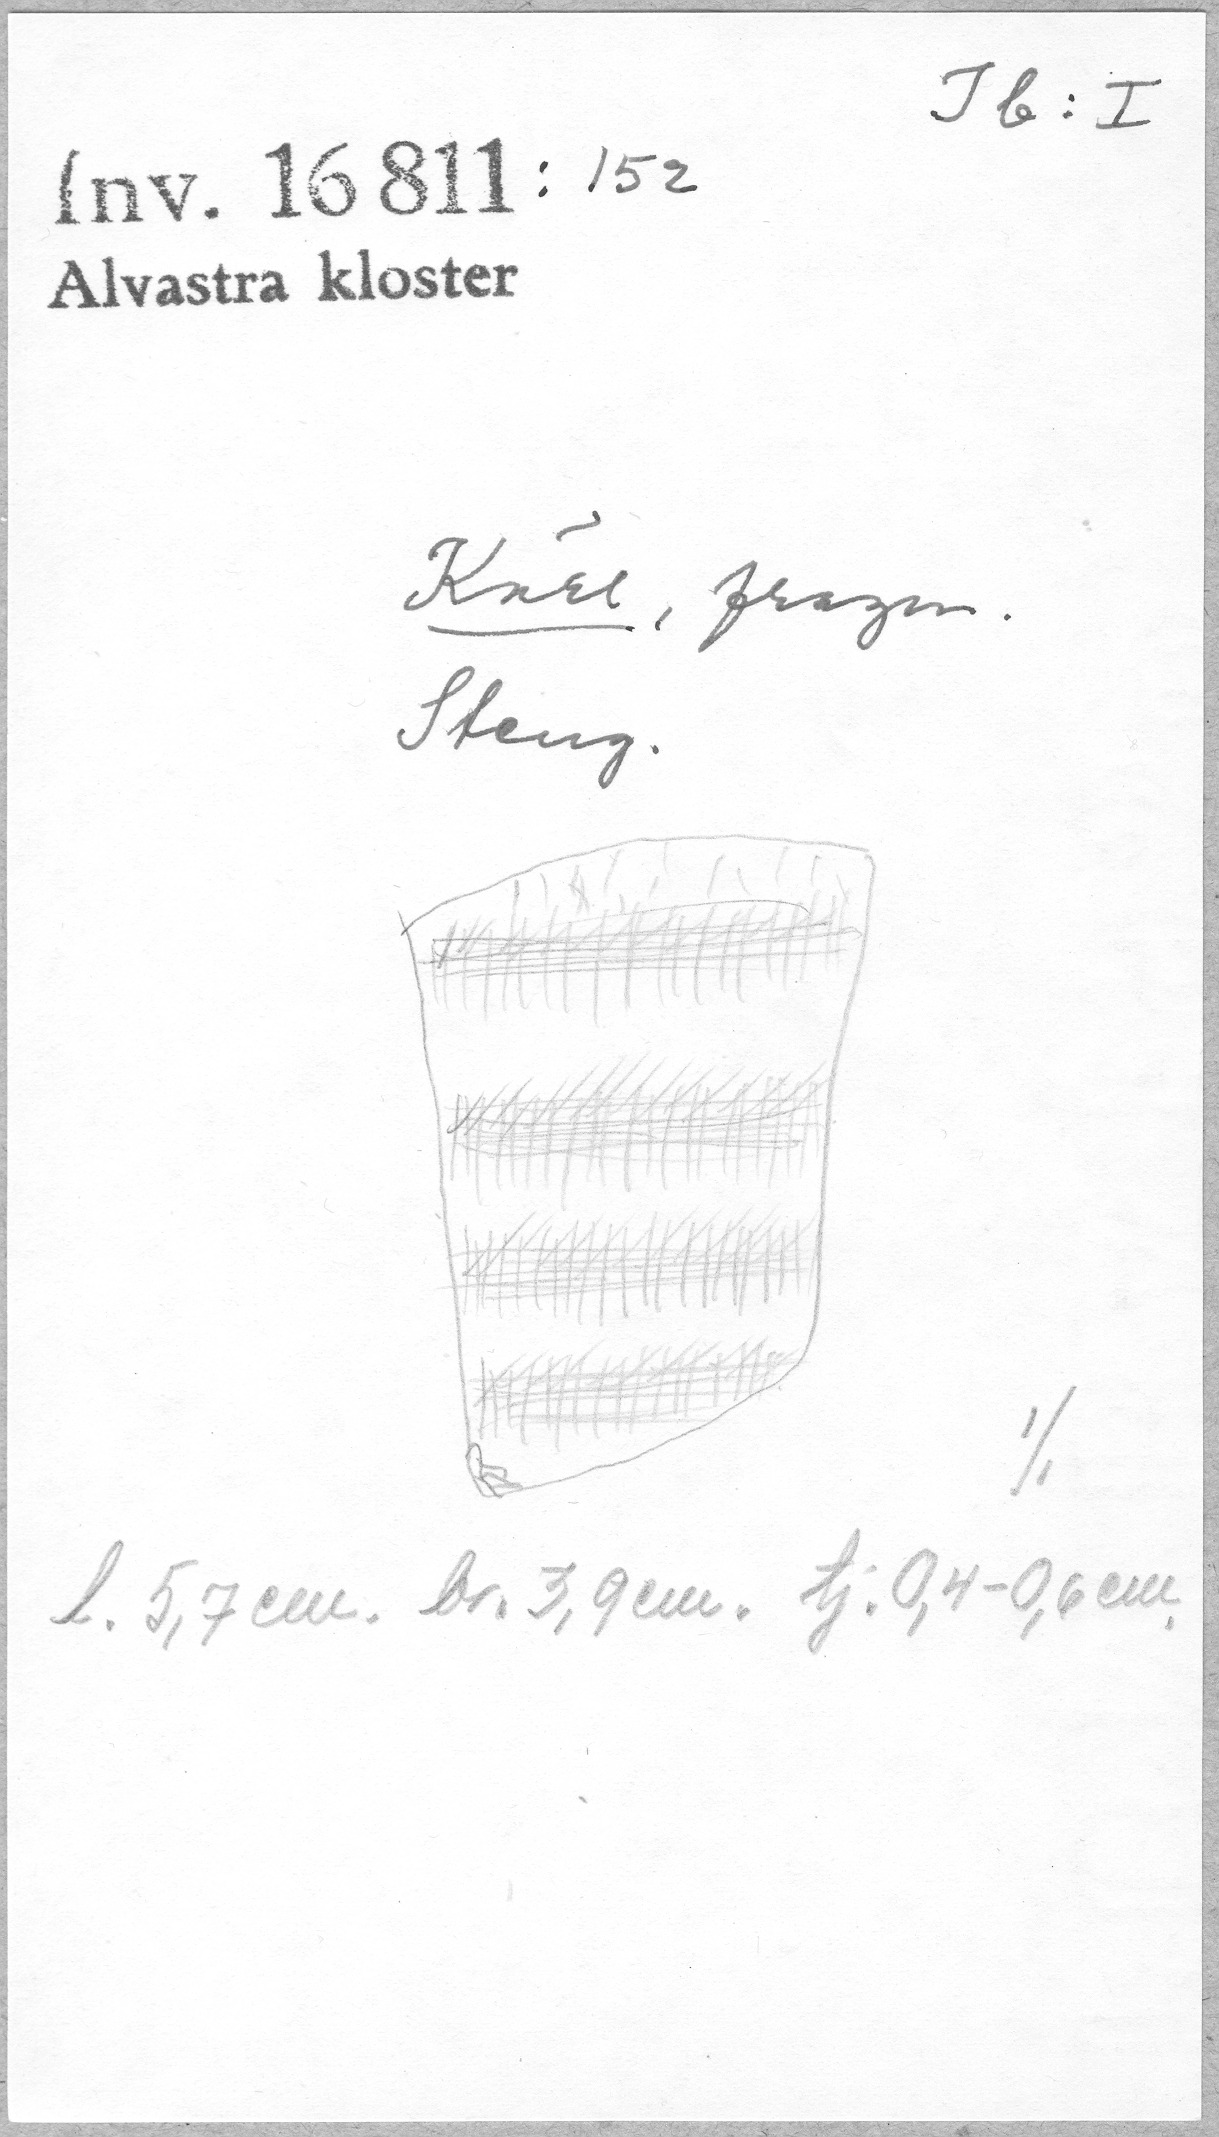 Ib: I
Inv. 16 811: 152
Alvastra kloster
Kärl, fragm.
Steng.
1/1
l. 5,7 cm. br. 3,9 cm. tj. 0,4-0,6 cm.